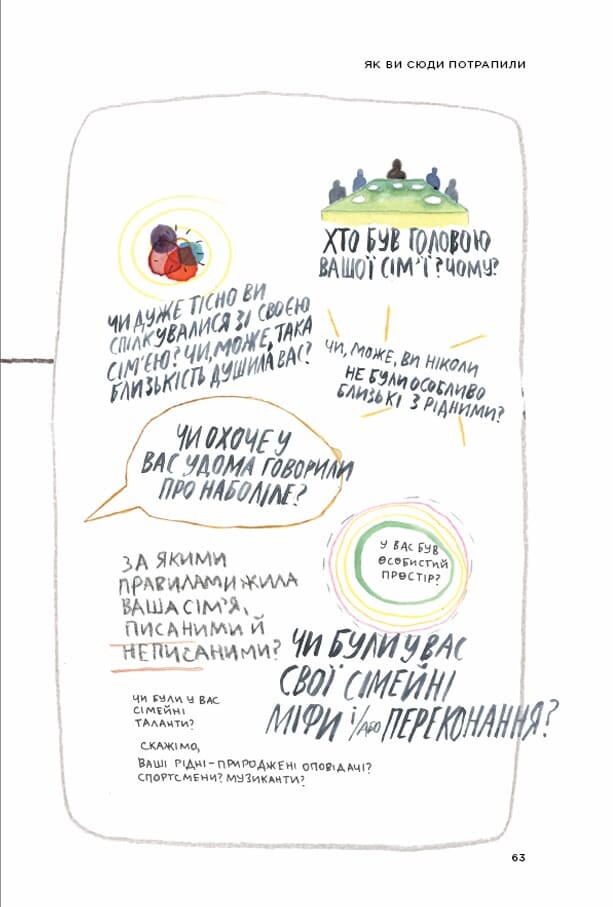 ЯК ВИ СЮДИ ПОТРАПИЛИ
ХТО БУВ ГОЛОВОЮ
ВАШОЇ СІМ'Ї? ЧОМУ?
ЧИ ДУЖЕ ТІСНО ВИ
СПІЛКУВАЛИСЯ ЗІ СВОЄЮ
СІМ'ЄЮ? ЧИ, МОЖЕ, ТАКА
БЛИЗЬКІСТЬ ДУШИЛА ВАС?
ЧИ, МОЖЕ, ВИ НІКОЛИ
НЕ БУЛИ ОСОБЛИВО
БЛИЗЬКІ З РІДНИМИ?
ЧИ ОХОЧЕ У
ВАС УДОМА ГОВОРИЛИ
ПРО НАБОЛІЛЕ?
У ВАС БУВ
ОСОБИСТИЙ
ПРОСТІР?
ЗА ЯКИМИ
ПРАВИЛАМИ ЖИЛА
ВАША СІМ'Я,
ПИСАНИМИ Й
НЕПИСАНИМИ?
ЧИ БУЛИ У ВАС
СВОЇ СІМЕЙНІ
МІФИ І/АБО ПЕРЕКОНАННЯ?
ЧИ БУЛИ У ВАС
СІМЕЙНІ
ТАЛАНТИ?
СКАЖІМО,
ВАШІ РІДНІ – ПРИРОДЖЕНІ ОПОВІДАЧІ?
СПОРТСМЕНИ? МУЗИКАНТИ?
63